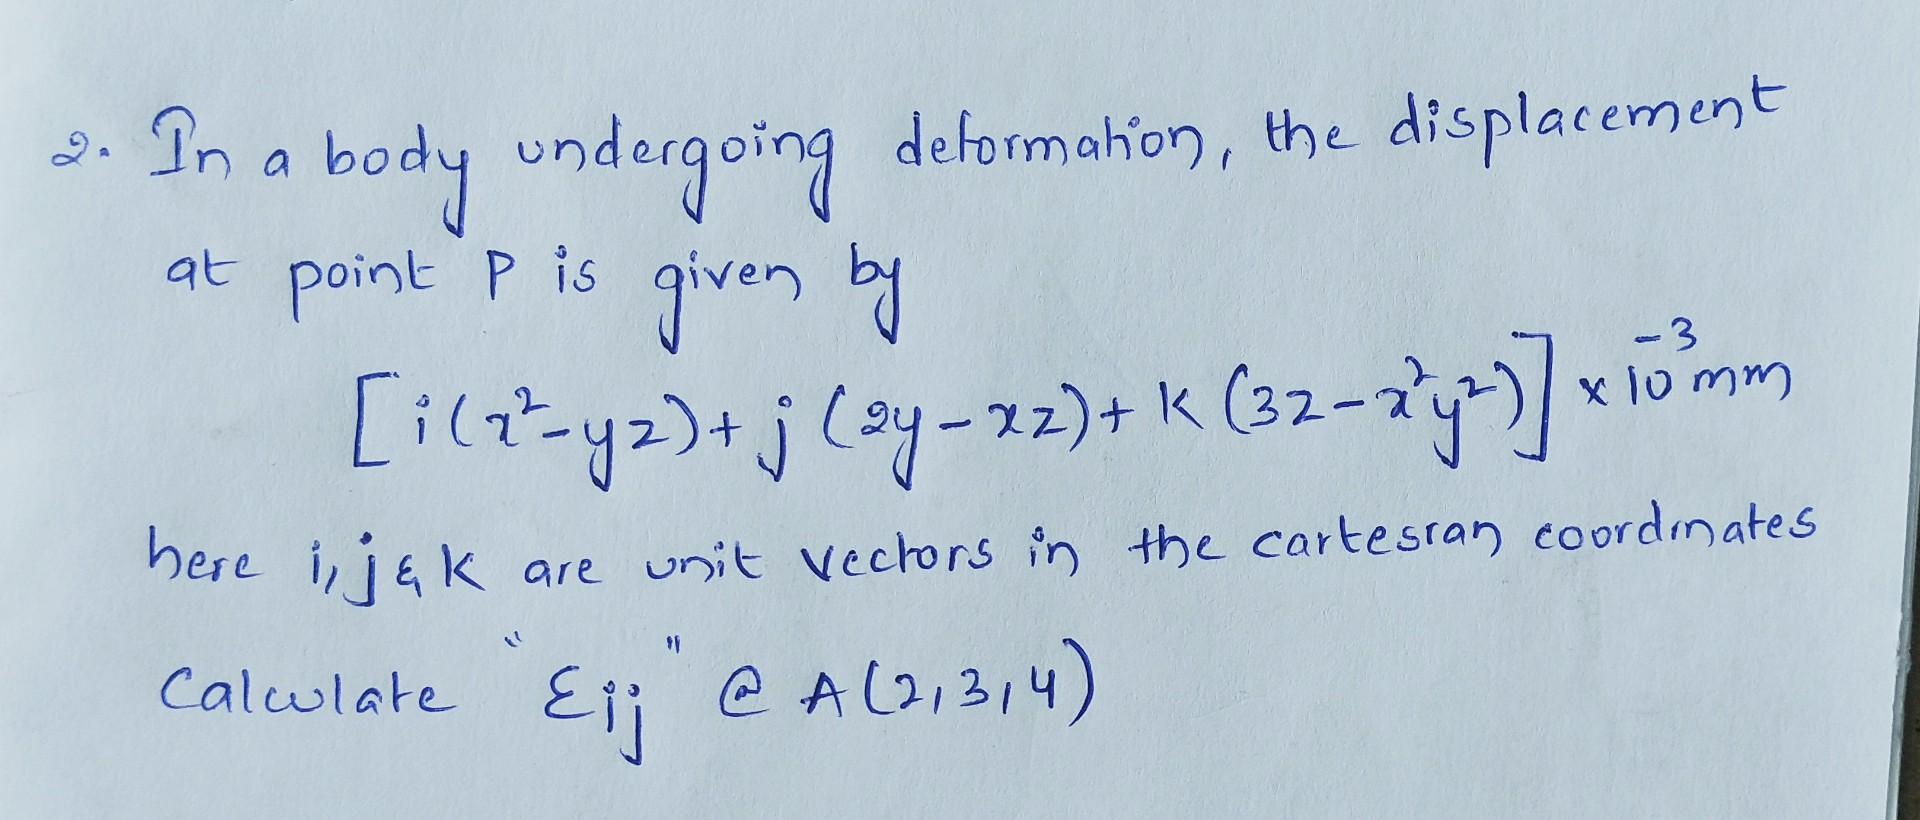 2. In a body undergoing deformation, the displacement
at point P is given by
[i(x²-yz)+j(2y-xz)+k(3z-x²y²)]×10⁻³mm
here i,j & k are unit vectors in the cartesian coordinates
Calculate "εij" @ A(2,3,4)